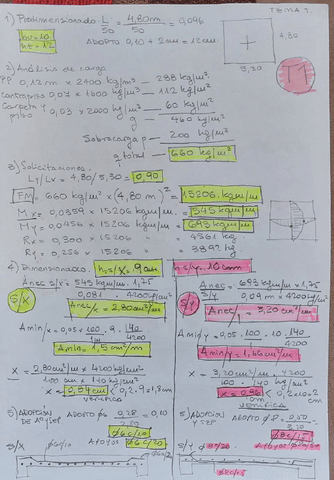 TEMA 1.
1) Predimensionado: L/50 = 4,80m/50 = 0,096
h=10
ht=12
ADOPTO 0,10 + 2cm = 12cm
4,80
5,30
T1
2) Análisis de carga
PP 0,12 m x 2400 kg/m³ — 288 kg/m²
Contrapiso 0,07 x 1600 kg/m³ — 112 kg/m²
Carpeta y piso 0,03 x 2000 kg/m³ — 60 kg/m²
g — 460 kg/m²
Sobrecarga p — 200 kg/m²
q total — 660 kg/m²
3) Solicitaciones
Ly/Lx = 4,80/5,30 = 0,90
FM = 660 kg/m² x (4,80 m)² = 15206 kgm/m.
Mx = 0,0359 x 15206 kgm/m. = 545 kgm/m
My = 0,0456 x 15206 kgm/m = 693 kgm/m
Rx = 0,300 x 15206 " 4561 kg
Ry = 0,256 x 15206 " 3892 kg
4) Dimensionado: h s/x = 9 cm
h s/y = 10 cm
S/X
Anec s/x = 545 kgm/m . 1,75
0,081 . 4200 kg/m²
Anec/x = 2,80 cm²/m
S/Y
Anec s/y = 693 kgm/m x 1,75
0,09 m x 4200 kg
Anec/y = 3,20 cm²/m
Amin/x = 0,05 x 100 . 9 . 140/4200
Amin = 1,5 cm²/m
Amin/y = 0,05 . 100 . 10 . 140/4200
Amin/y = 1,66 cm²/m
X = 2,80 cm²/m x 4200 kg/cm²
100 cm x 140 kg/cm²
x = 0,84 cm < 0,2 . 9 = 1,8 cm
verifica
X = 3,20 cm²/m . 4200
100 . 140 kg/cm²
x = 0,96 cm < 0,2 x 10 = 2 cm
verifica
5) ADOPCION DE Aº y SEP
ADOPTO ø6 0,28/2,80 = 0,10
ø6c/10
S/X
APOYOS ø6c/20
5) ADOPCION Y SEP
ADOPTO ø8 = 0,50/3,20
ø8c/15
S/Y